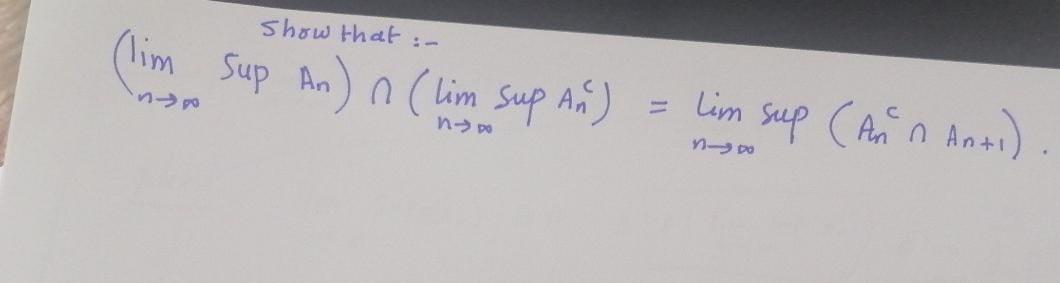 Show that :-
(lim n→∞ Sup An) ∩ (lim n→∞ sup Anᶜ) = lim n→∞ sup (Anᶜ ∩ An+1).